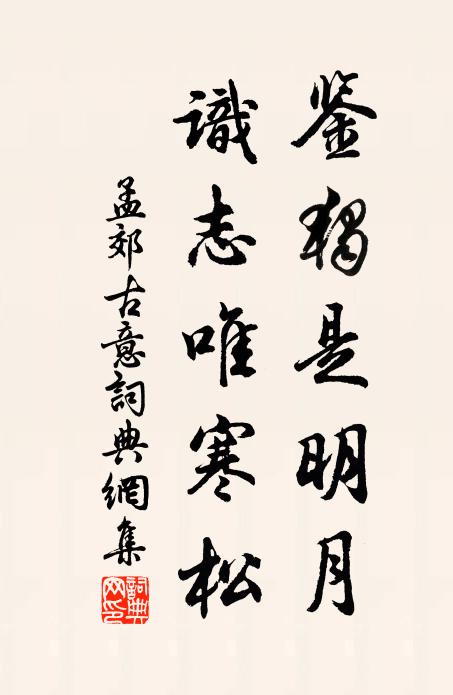 鉴獨是明月
識志唯寒松
孟郊古意詞典網集
詞典網印